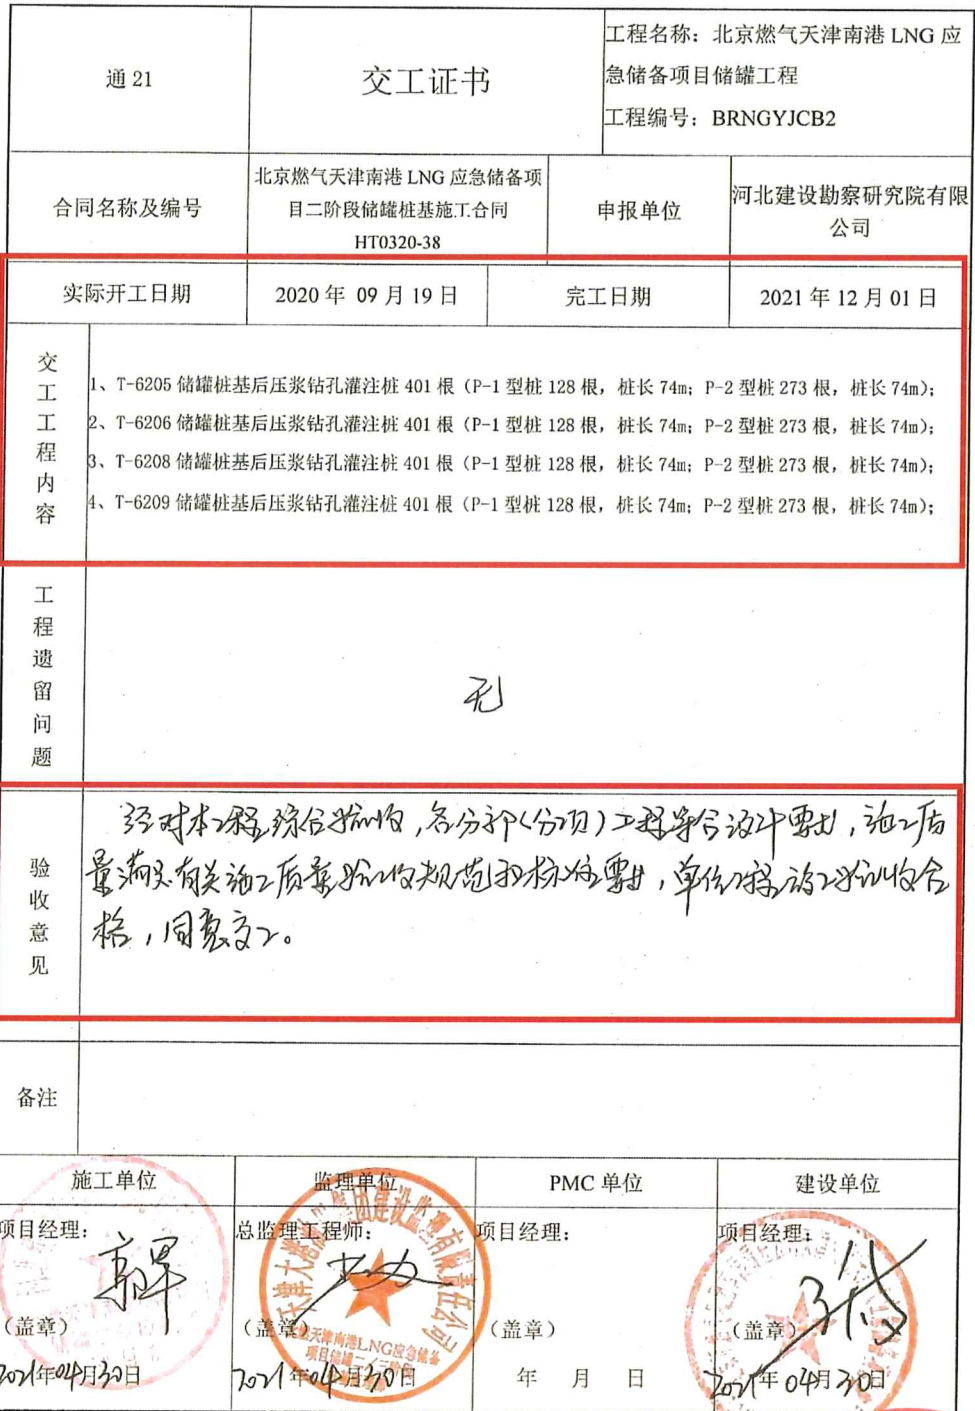 通 21
交工证书
工程名称：北京燃气天津南港 LNG 应
急储备项目储罐工程
工程编号：BRNGYJCB2
合同名称及编号
北京燃气天津南港 LNG 应急储备项
目二阶段储罐桩基施工合同
HT0320-38
申报单位
河北建设勘察研究院有限
公司
实际开工日期
2020 年 09 月 19 日
完工日期
2021 年 12 月 01 日
交工工程内容
1、T-6205 储罐桩基后压浆钻孔灌注桩 401 根（P-1 型桩 128 根，桩长 74m；P-2 型桩 273 根，桩长 74m）；
2、T-6206 储罐桩基后压浆钻孔灌注桩 401 根（P-1 型桩 128 根，桩长 74m；P-2 型桩 273 根，桩长 74m）；
3、T-6208 储罐桩基后压浆钻孔灌注桩 401 根（P-1 型桩 128 根，桩长 74m；P-2 型桩 273 根，桩长 74m）；
4、T-6209 储罐桩基后压浆钻孔灌注桩 401 根（P-1 型桩 128 根，桩长 74m；P-2 型桩 273 根，桩长 74m）；
工程遗留问题
无
验收意见
经对本工程综合验收，各分部（分项）工程符合设计要求，施工质
量满足有关施工质量验收规范和标准要求，单位工程施工验收合
格，同意交工。
备注
施工单位
监理单位
PMC 单位
建设单位
项目经理：
总监理工程师：
项目经理：
项目经理：
（盖章）
（盖章）
（盖章）
（盖章）
2021年04月30日
2021年04月30日
年 月 日
2021年04月30日